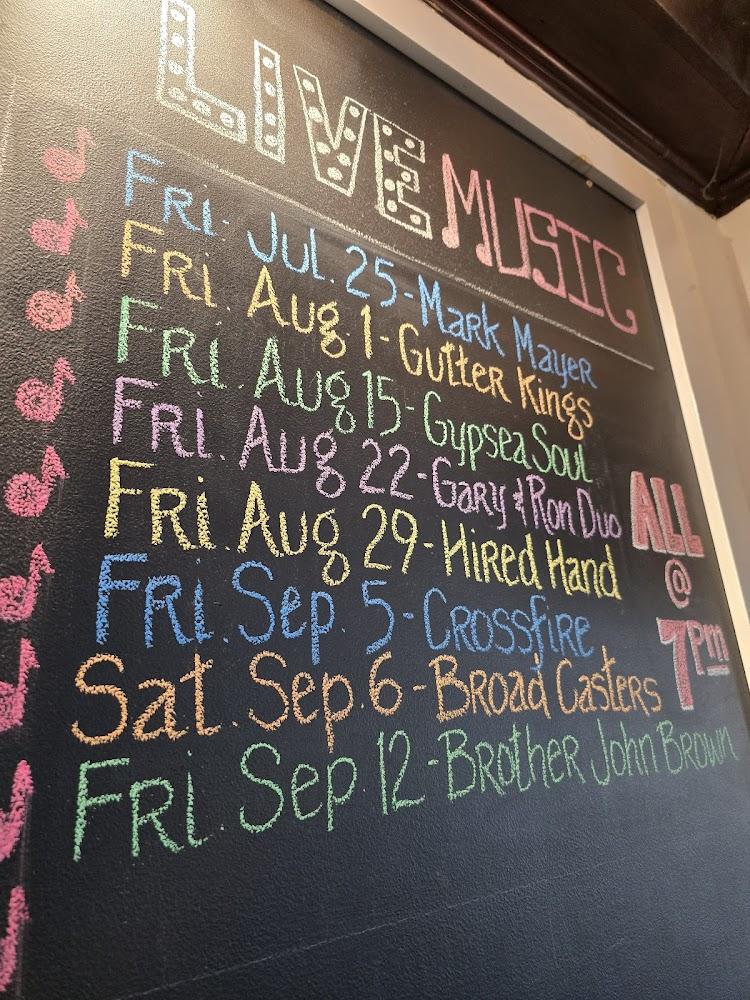 LIVE MUSIC
Fri. Jul. 25 - Mark Mayer
Fri. Aug 1 - Gutter Kings
Fri. Aug 15 - Gypsea Soul
Fri. Aug 22 - Gary & Ron Duo
Fri. Aug 29 - Hired Hand
Fri. Sep. 5 - Crossfire
Sat. Sep. 6 - Broad Casters
Fri. Sep. 12 - Brother John Brown
ALL
@
7pm